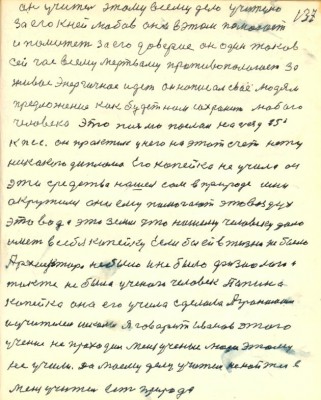 он учился этому всему делу учителю 137
За его к ней любовь она в этом помогает
и помнит за его доверие он один таков
сей час всему мертвому противополагает за
живое Энергичное идет он написал своё людям
предложение как будет нам сохранить любого
человека Это письмо послал на съезд
К.п.с.с. он просит у него на этот счет нету
никакого диплома Его копейка не учила он
эти средства нашел сам в природе ими
окружился они ему помогают это воздух
это вода это земля Это нашему человеку дало
иметь в себе копейку Если бы ей в жизни не было
Архитектора не было и не было физиолога
также не был ученого человек
копейка она его учила сделала Агрономом
и учителем школы Я говорит Иванов этого
учение не проходил Меня ученые люди этому
не учили. да моему делу учителя не найти
Меня учитель есть природа